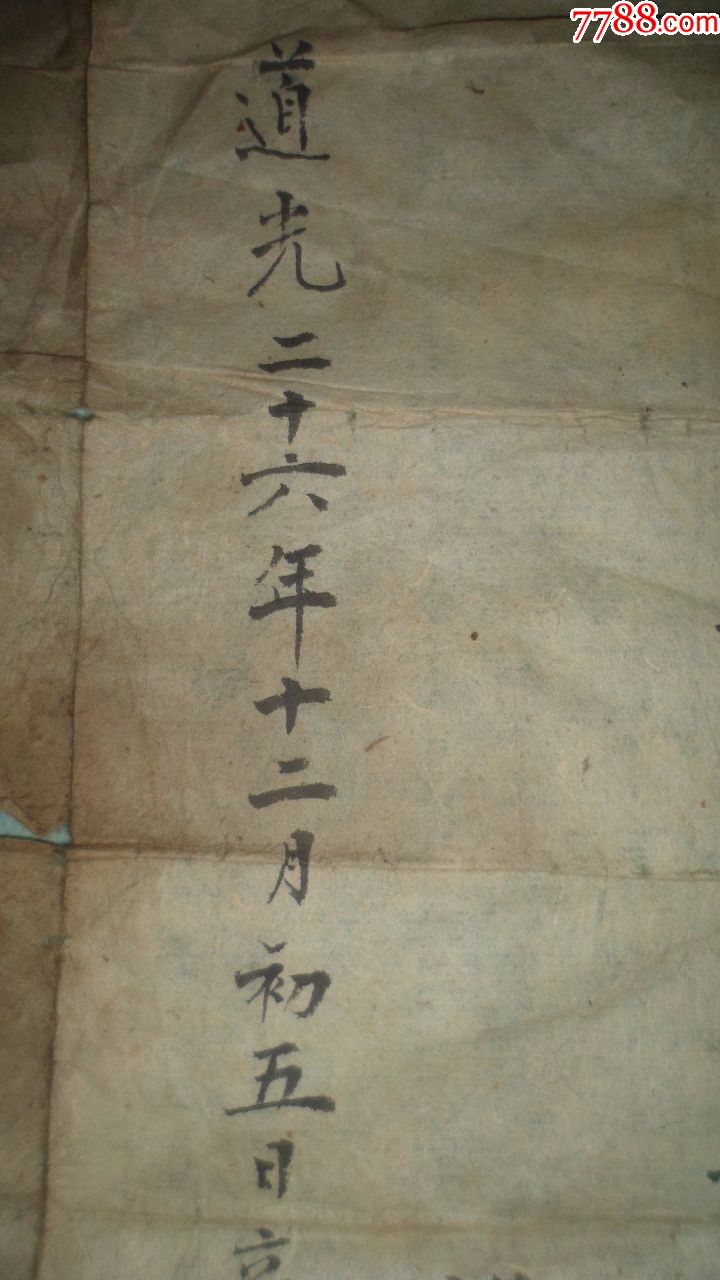 7788.com
道光二十六年十二月初五日